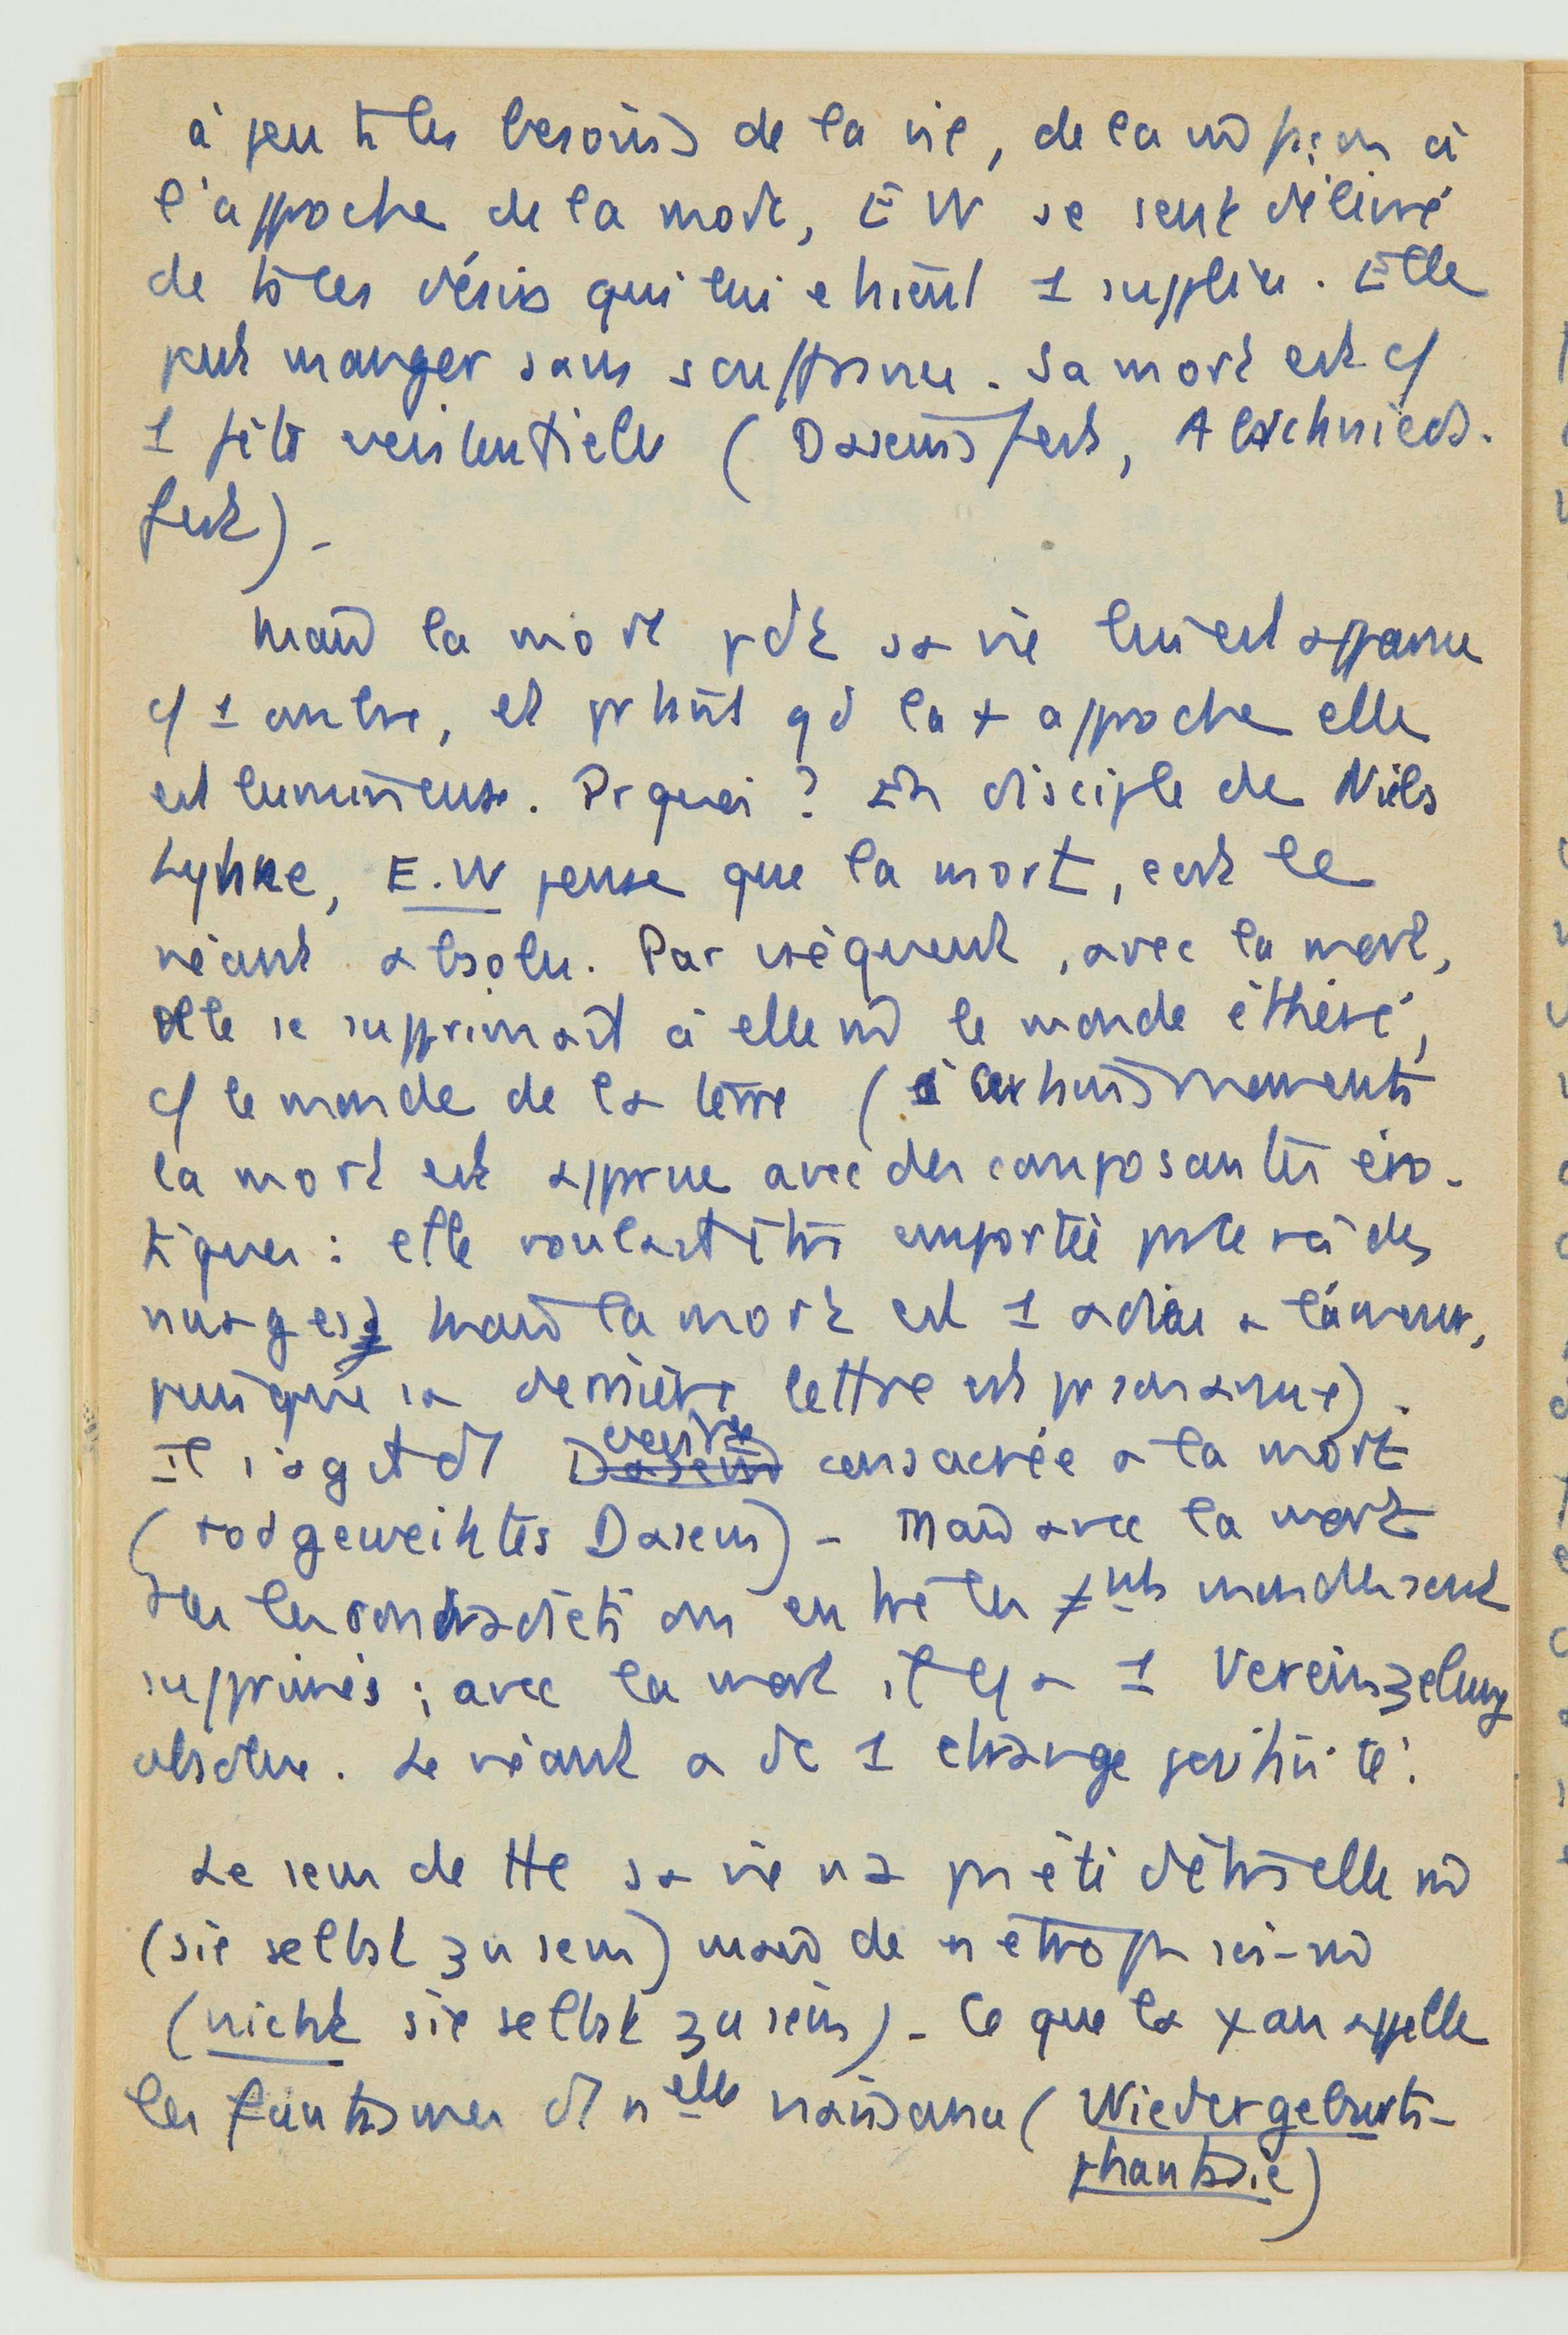 à peu ts les besoins de la vie, de la m̂ façon à
l'approche de la mort, E W se sent délivré
de ts les désirs qui lui étaient 1 supplice. Elle
peut manger sans souffrance. Sa mort est c/
1 fête existentielle (Daseinsfest, Abschieds-
fest) -
Mais la mort pdt sa vie lui est apparue
c/ 1 autre, et prtant qd la + approche elle
est lumineuse. Pr quoi ? En disciple de Niels
Lyhne, E.W pense que la mort, c'est le
néant absolu. Par conséquent, avec la mort,
elle se supprimait à elle m̂ le monde éthéré,
c/ le monde de la terre (à certains moments
la mort est apparue avec des composantes éro-
tiques : elle voulait être emportée par le roi des
nuages, mais la mort est 1 adieu à l'amour,
puisque sa dernière lettre est pr son amie).
Il s'agit d' existence consacrée à la mort
(todgeweihtes Dasein) - Mais avec la mort
les contradictions entre les ≠nts mondes sont
supprimés ; avec la mort il y a 1 Vereinzelung
absolue. Le néant a dc 1 charge positivité.
Le sens de tte sa vie n'a pas été d'être elle m̂
(sie selbst zu sein) mais de n'être pas soi-m̂
(nicht sie selbst zu sein) - Ce que la ψan appelle
les fantasmes d' nelle naissance (Wiedergeburts-
phantasie)